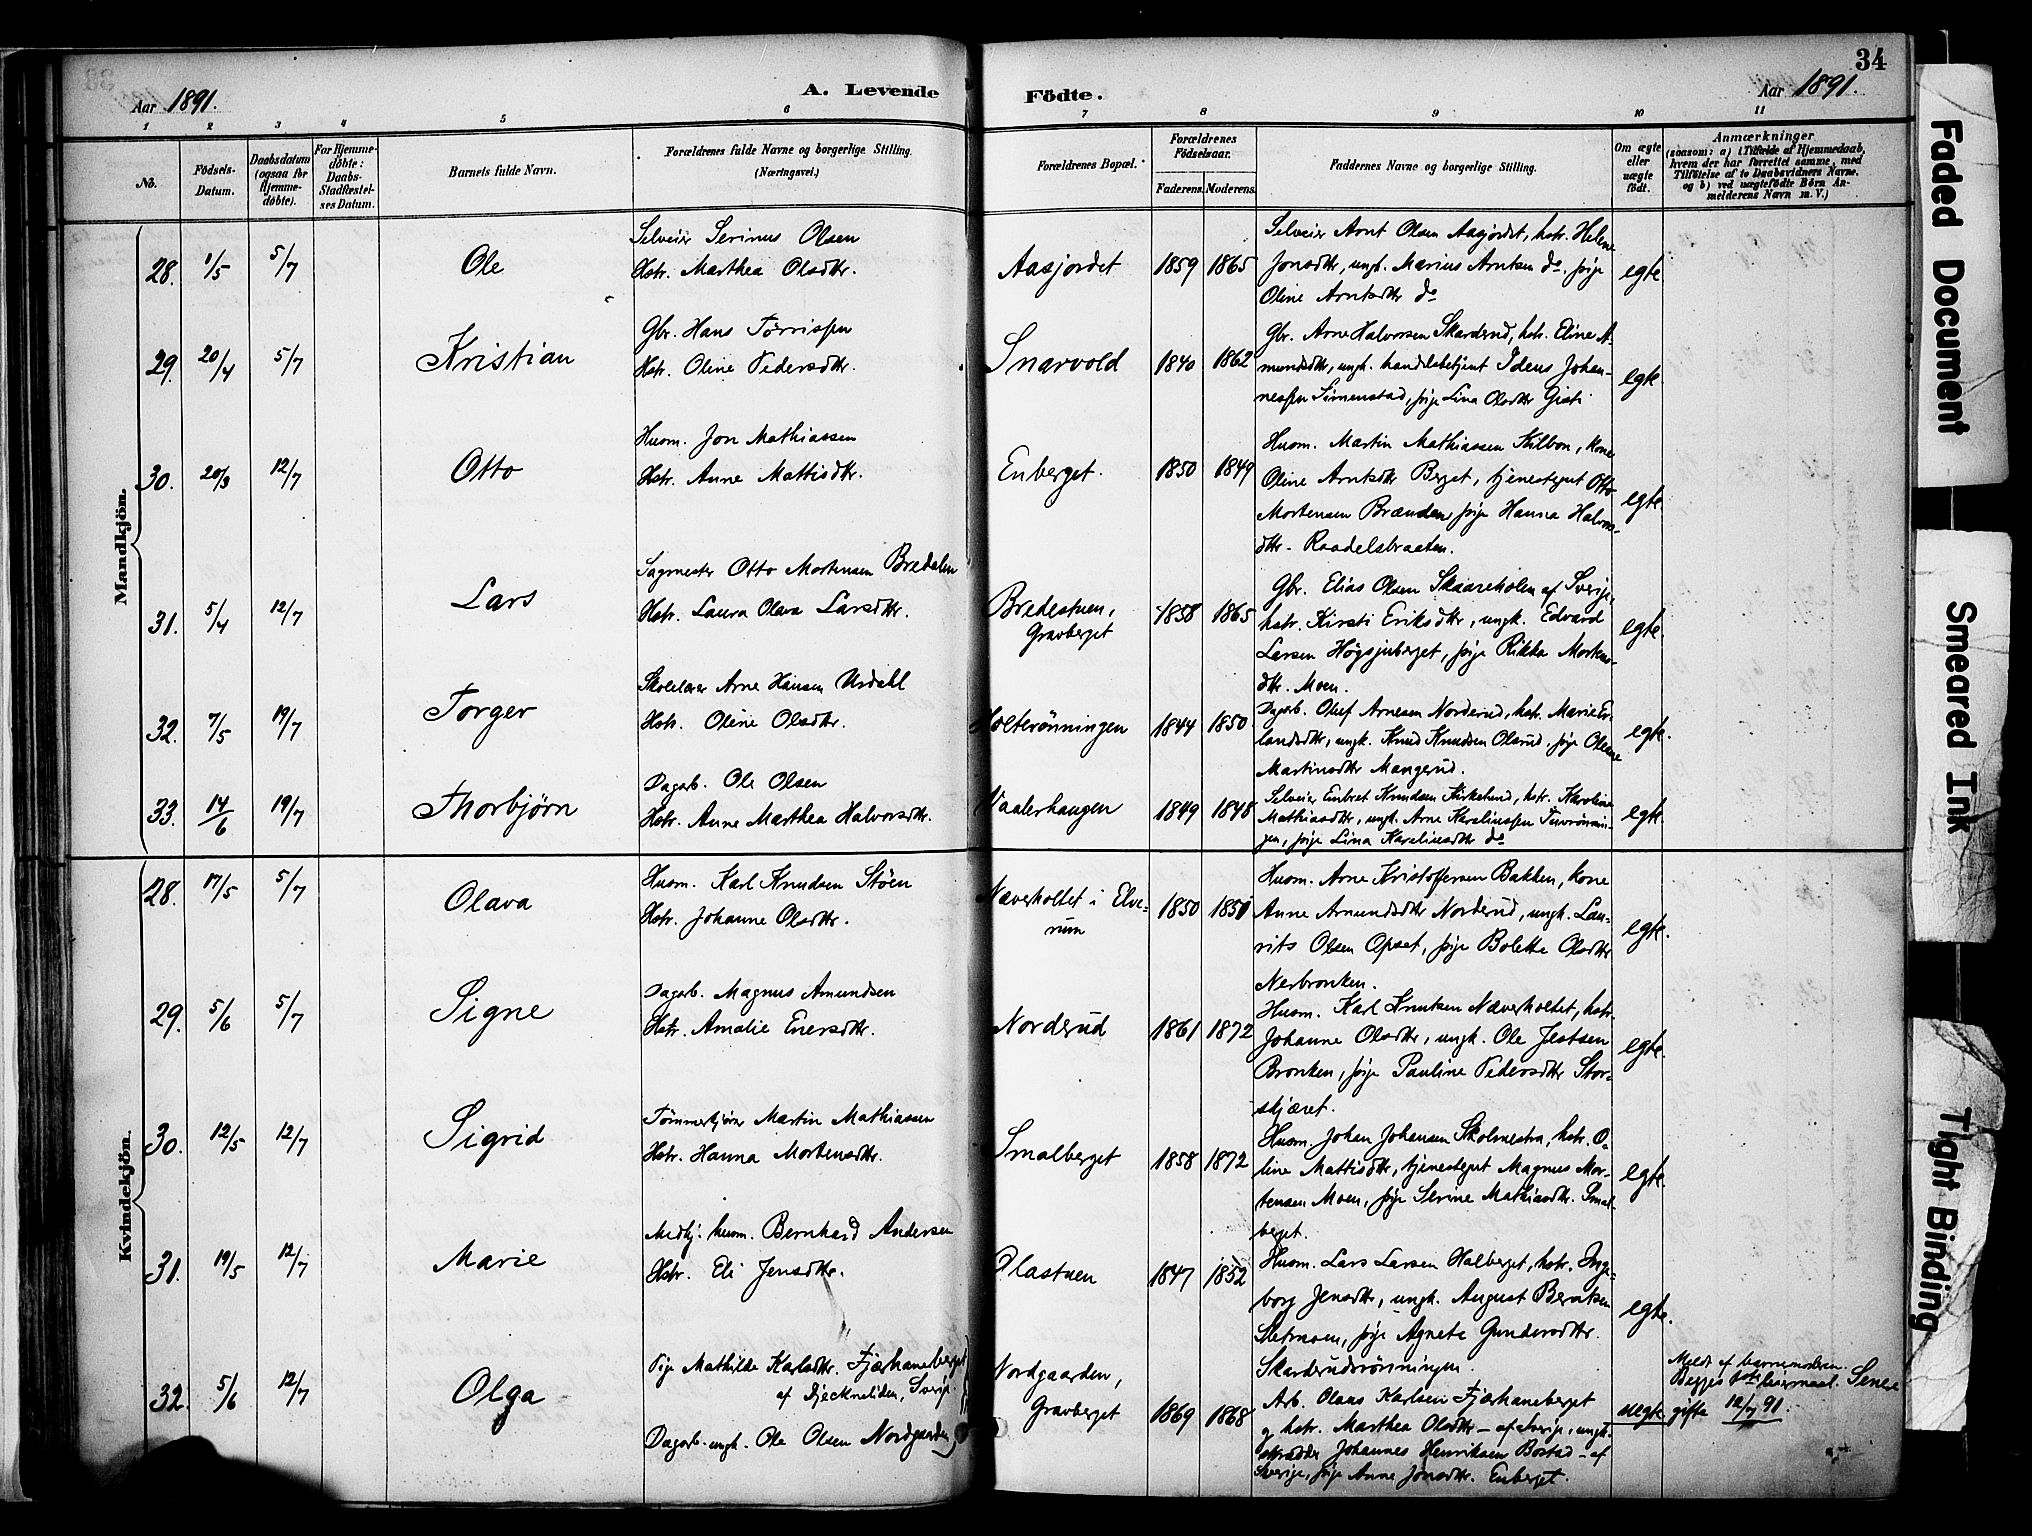 34
Aar 1891.
A. Levende
Födte.
Aar 1891.
1 2 3 4 5 6 7 8 9 10 11
No.
Födsels-
Datum.
Daabsdatum
(ogsaa for
Hjemme-
döbte).
For Hjemme-
döbte:
Daabs-
Stadfæstel-
ses Datum.
Barnets fulde Navn.
Forældrenes fulde Navne og borgerlige Stilling.
(Næringsvei.)
Forældrenes Bopæl.
Forældrenes
Födselsaar.
Faderens. Moderens.
Faddernes Navne og borgerlige Stilling.
Om ægte
eller
uægte
födt.
Anmærkninger
(saasom: a) i Tilfælde af Hjemmedaab,
hvem der har forrettet samme, med
Tilföielse af to Daabsvidners Navne.
og b) ved uægtefödte Börn An-
melderens Navn m. V.)
Mandkjön.
28. 1/5 5/7 Ole
Selveier Serinus Olsen
Hstr. Marthea Olsdtr.
Aasjordet 1859 1865
Selveier Arnt Olsen Aasjordet, hstr. Helene
Jonsdtr, ungk. Marius Arntsen do, pige
Oline Arntsdtr do
egte
29. 20/4 5/7 Kristian
Gbr. Hans Tørrissen
Hstr. Oline Pedersdtr.
Snarvold 1840 1862
Gbr. Arne Halvorsen Skarderud, hstr. Eline A-
mundsdtr, ungk. handelsbetjent Idens Johan-
nessen Simenstad, pige Lina Olsdtr Gisti
egte
30. 20/3 12/7 Otto
Husm. Jon Mathiassen
Hstr. Anne Mattisdtr.
Enberget. 1850 1849
Husm. Martin Mathiassen Kilbon, kone
Oline Arntsdtr Berget, tjenestegut Otto
Mortensen Brænden, pige Hanna Halvors-
dtr. Raadelsbraaten.
egte.
31. 5/4 12/7 Lars
Sagmester Otto Mortensen Bredalen
Hstr. Laura Olava Larsdtr.
Bredestuen,
Gravberget
1858 1865
Gbr. Elias Olsen Skaareholen af Sverige,
hstr. Kirsti Eriksdtr, ungk. Edvard
Larsen Högsjuberget, pige Rikka Mortens-
dtr. Moen.
egte.
32. 7/5 19/7 Torger
Skolelærer Arne Hansen Urdahl
Hstr. Oline Olsdtr.
Holterönningen 1844 1850
Dagarb. Oluf Arnesen Norderud, hstr. Marie Er-
landsdtr, ungk. Knud Knudsen Olsrud, pige Olene
Martinsdtr Mangerud.
egte.
33. 14/6 19/7 Thorbjørn
Dagarb. Ole Olsen
Hstr. Anne Marthea Halvorsdtr.
Vaalerhaugen 1849 1848
Selveier Embret Knudsen Kirkelund, hstr. Karoline
Mathiasdtr, ungk. Arne Karelinssen Tuvrönnin-
gen, pige Lina Karelinsdtr do
egte.
Kvindekjön.
28. 17/5 5/7 Olava
Husm. Karl Knudsen Støen
Hstr. Johanne Olsdtr.
Næverholtet i Elve-
rum
1850 1851
Husm. Arne Kristoffersen Bakken, kone
Anne Amundsdtr Norderud, ungk. Lau-
rits Olsen Opset, pige Bolette Olsdtr
Nerbronken.
egte.
29. 5/6 5/7 Signe
Dagarb. Magnus Amundsen
Hstr. Amalie Enersdtr.
Norderud 1861 1872
Husm. Karl Knutsen Næverholtet, hstr.
Johanne Olsdtr, ungk. Ole Jestsen
Bronken, pige Pauline Pedersdtr Stor-
skjæret.
egte.
30. 12/5 12/7 Sigrid
Tømmerkjører Martin Mathiassen
Hstr. Hanna Mortensdtr.
Smalberget 1858 1872
Husm. Johan Johansen Skolmestra, hstr. O-
line Mattisdtr, tjenestegut Magnus Mor-
tensen Moen, pige Serine Mathiasdtr. Smal-
berget.
egte.
31. 19/5 12/7 Marie
Medhj. husm. Bernhard Andersen
Hstr. Eli Jensdtr.
Plastuen 1847 1852
Husm. Lars Larsen Halberget, hstr. Inge-
borg Jensdtr, ungk. August Berntsen
Sletmoen, pige Agnete Gundersdtr.
Skarderudsrönningen.
egte.
32. 5/6 12/7 Olga
Pige Mathilde Karlsdtr. Fjærhaneberget
af Djeckneliden, Sverige.
Dagarb. ungk. Ole Olsen Nordgaarden
Nordgaarden,
Gravberget
1869 1868
Arb. Olaus Karlsen Fjærhaneberget
og hstr. Marthea Olsdtr – af Sverige, ungk.
Johannes Henriksen Bostad – af
Sverige, pige Anne Jonsdtr. Enberget.
uegte
Meldt af barnemoderen.
Begges 1ste leiermaal. Senere
gifte 12/7 91
Faded Document
Smeared Ink
Tight Binding